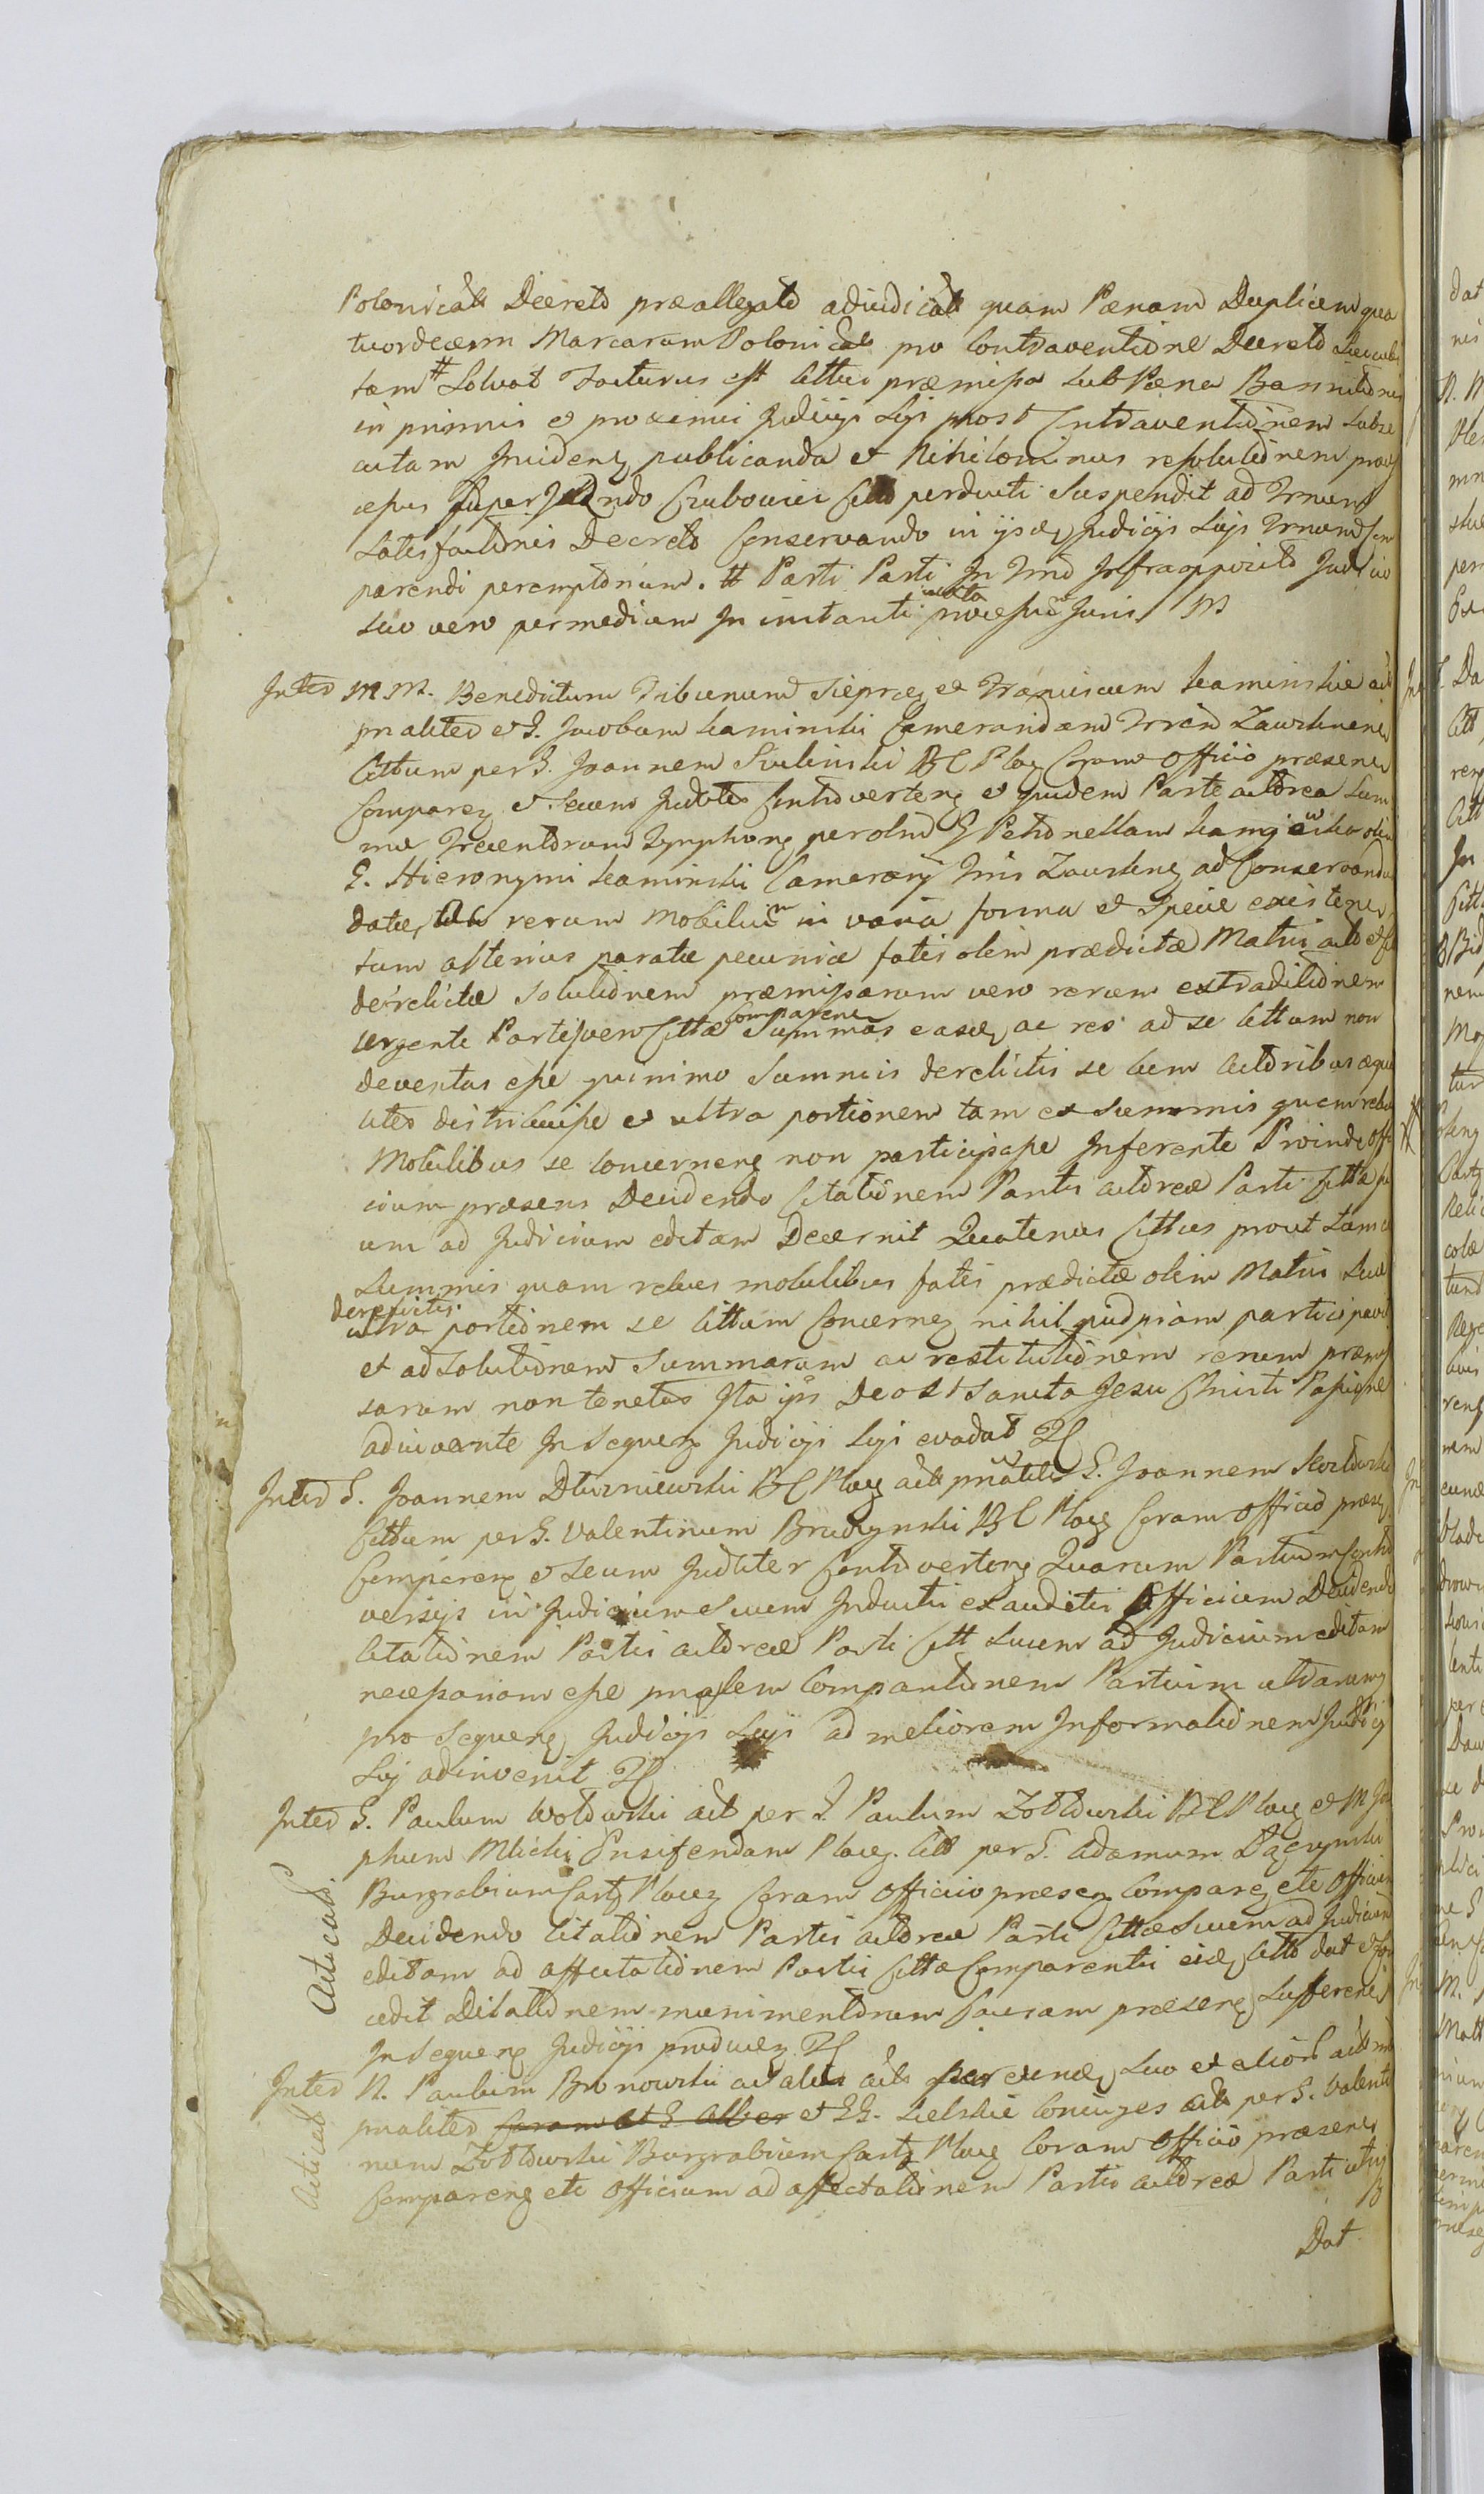 Polonicals Decreto præallegato adiudicals quam Pænam Duplicem qua
tuordecem Marcarum Polonicals pro Contraventione Decreto
tam # Solvat facturus est Cittus præmissa sub Pæna Bannitionis
in primis et proximis Judicijs Sijs post Contraventionem subse
cutam Inciden publicanda et Nihilominus resolutionem
Citto perducti Suspendit ad Trnum
Satisfactionis Decreto Conservando in ijsdem Judicijs Sijs Trnum Com
parendi peremptorium. # Parti Parti In Trno Infraapposito Judicio
suo vero permedium In instanti iuxta processum Juris M
Inter M M. Benedictum Tribunum Sieprcz et Franciscum Kaminskie act
pnaliter et G. Jacobum Kaminski Cameraridam Trræ Zawskrene
Cittum per G. Joannem Sulinski BC Plog Coram Officio præsen
Comparen et secum Judicter Controverten et quidem Parte actorea Sum
mæ Trecentorum Tynphon per olim G Petronellam Kaminska olim
G. Hieronymi Kaminski Camerarij Trris Zawskren ad Conservandum
datæ, rerum Mobilium in varia forma et Specie existen
tum alterius paratæ pecuniæ fatis olim prædictæ Matris acto et
derelictæ Solutionem præmissarum vero rerum extraditionem
urgente Parte vero Citta Comparen Summas easdem ac res ad se Cittum non
deventas esse quinimo Summis derelictis se cum Actoribus æqua
liter distribuisse et ultra portionem tam ex summis quam rebus
Mobilibus se concernen non participasse Inferente Proinde Offi
cium præsens Decidendo Citationem Partis actoreæ Parti Cittæ su
um ad Judicium editam Decernit Quatenus Cittus prout tam ex
Summis quam rebus mobilibus fatis prædictæ olim Matris suæ
derelictis
ultra portionem se Cittum Concernen nihil quidpiam participavit
et ad Solutionem Summarum ac restitutionem rerum præmis
sarum non tenetur Ita ipse Deo et Sancta Jesu Christi Passione
adiuvante In Sequen Judicijs Sijs evadat
Inter G. Joannem Dłuzniewski BC Plog act pnaliter G. Joannem
Cittum per G. Valentinum Brudzynski BC Plog Coram Officio præsen
Comparen et secum Judicter Controverten Quarum Partium Contro
versijs in Judicium suum Inductis exauditis Officium Decidendo
Citationem Partis actoreæ Parti Citt suum ad Judicium editam
necessariam esse pnalem Comparitionem Partium utrarumq
pro Sequen Judicijs Sijs ad meliorem Informationem Judicij
Sij adinvenit
Inter G. Paulum Wotowski act per G. Paulum Zoltowski BC Plog et M Jose
phum Mlicki Ensiferidam Plocz. Citt per G. Adamum Dączynski
Burgrabium Castr Plocz Coram Officio præsen Comparen etc Officium
Decidendo Citationem Partis actoreæ Parti Cittæ suum ad Judicium
editam ad affectationem Partis Cittæ Comparentis eidem Citto dat et con
cedit Dilationem munimentorum Causam præsen Sufferen
In Sequen Judicijs producen
Inter N. Paulum Bronowski actalis acts suo et alior act
pnaliter Coram et G. Alber et GG. Sielskie Coniuges acts per G. Valenti
num Zoltowski Burgrabium Castr Plog Coram Officio præsen
Comparen etc Officium ad affectationem Partis actoreæ Parti utriq
Dat
Acticat
Acticat